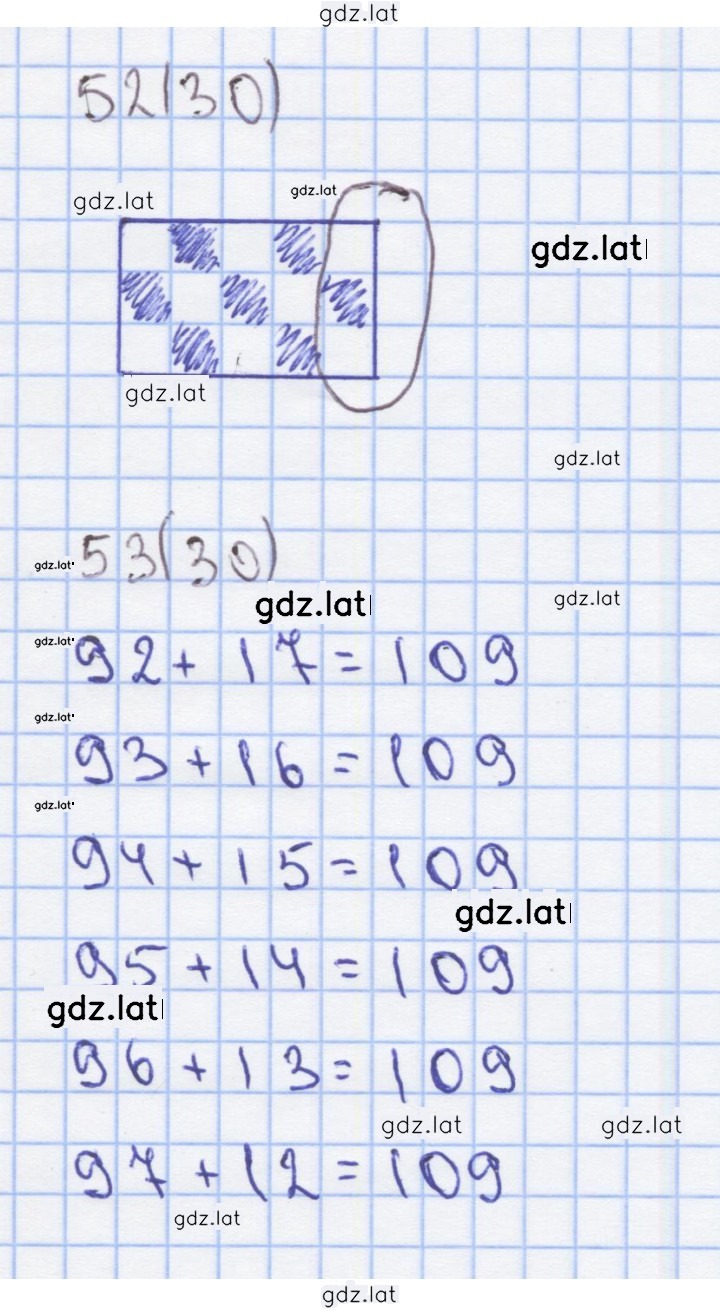 gdz.lat
52(30)
gdz.lat gdz.lat
gdz.lat
gdz.lat
gdz.lat
53(30)
gdz.lat
gdz.lat gdz.lat
gdz.lat
92 + 17 = 109
gdz.lat
93 + 16 = 109
gdz.lat
94 + 15 = 109
gdz.lat
95 + 14 = 109
gdz.lat
96 + 13 = 109
gdz.lat gdz.lat
97 + 12 = 109
gdz.lat
gdz.lat